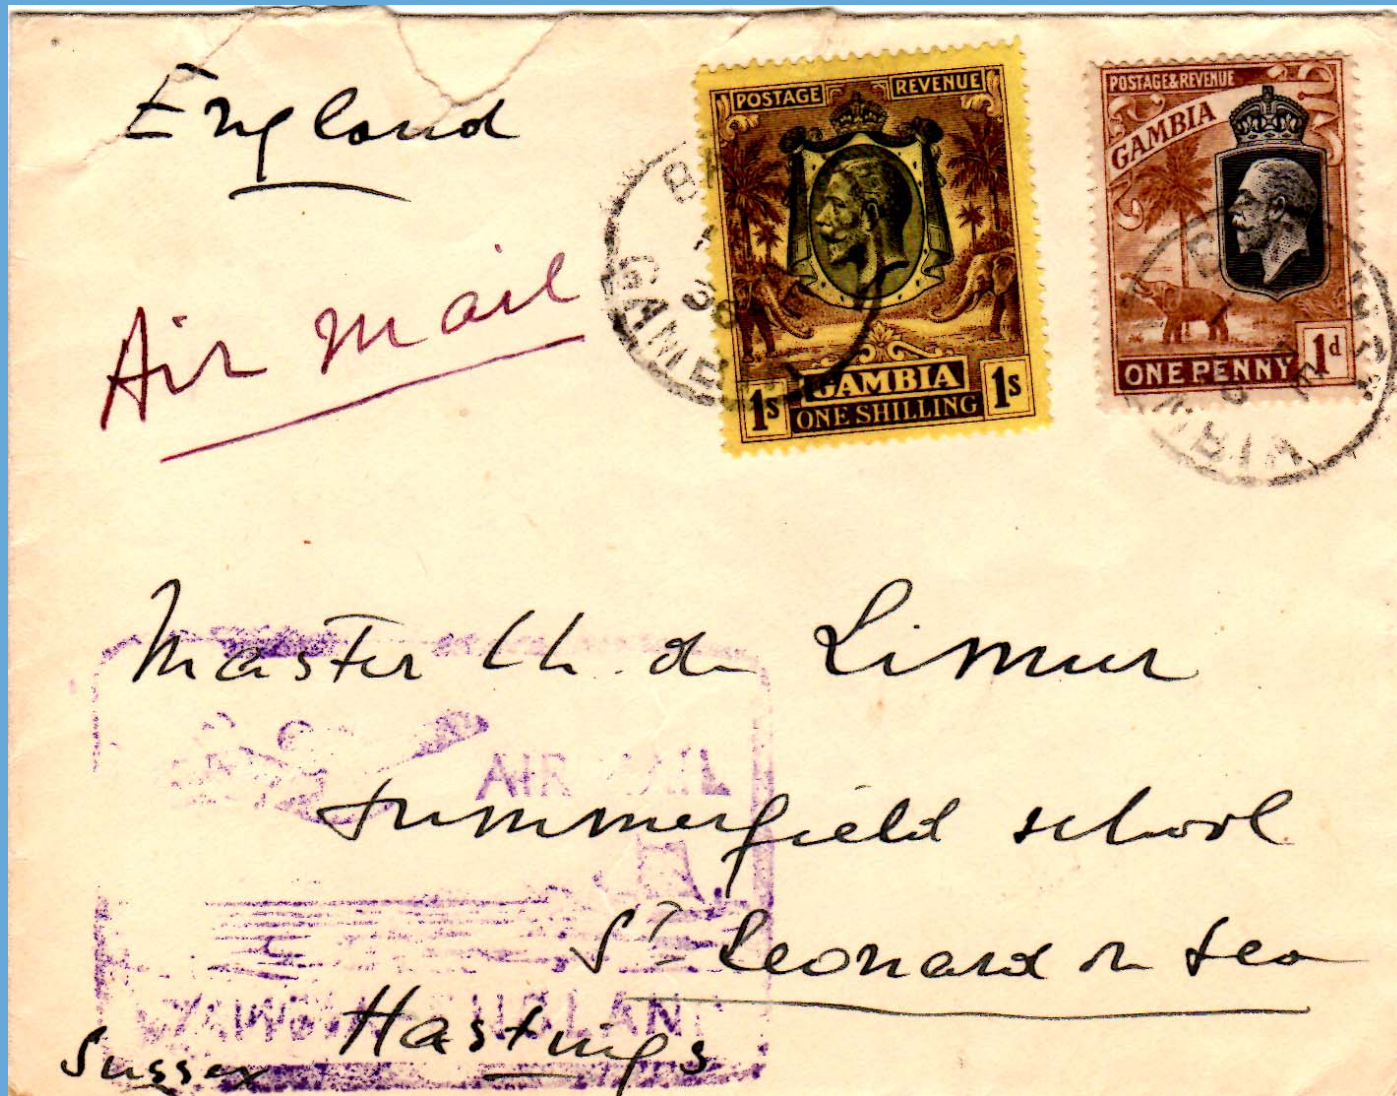 England
Air Mail
POSTAGE REVENUE
GAMBIA
ONE SHILLING
1s 1s
POSTAGE & REVENUE
GAMBIA
ONE PENNY 1d
GAMBIA
GAMBIA
Master Ch. de Limur
AIR MAIL
Summerfield school
St Leonard on sea
Hastings
Sussex